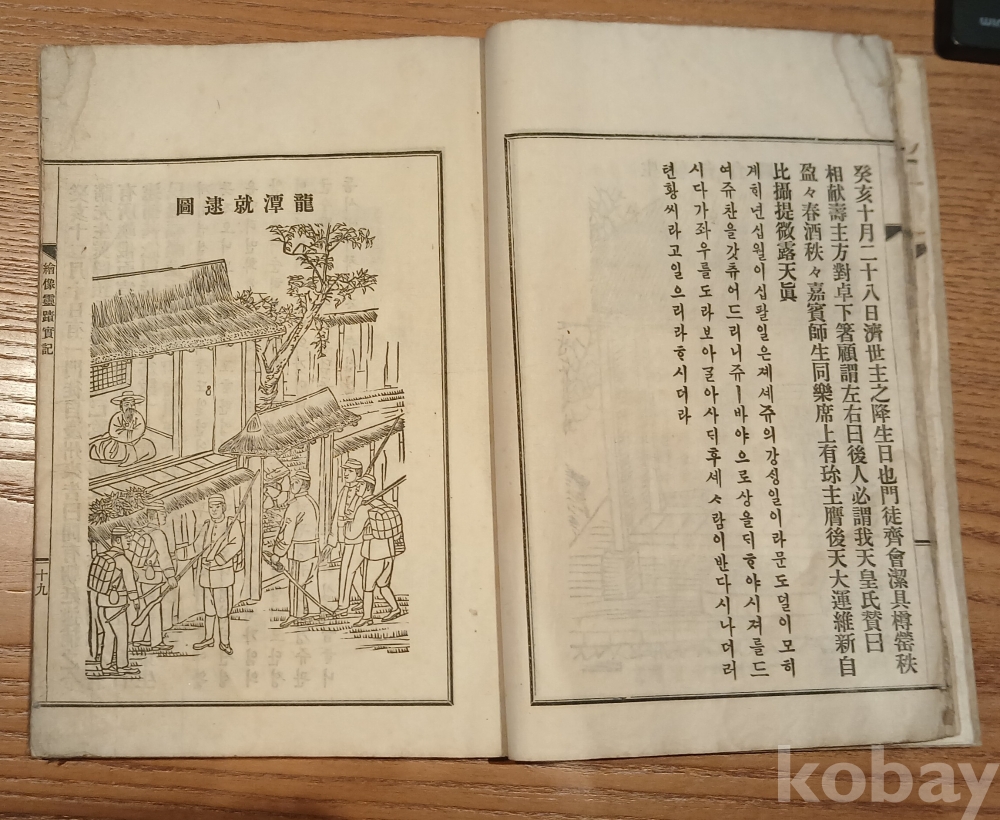 癸亥十月二十八日濟世主之降生日也門徒齊會潔具樽罍秩
相献壽主方對卓下箸顧謂左右曰後人必謂我天皇氏賛曰
盈々春酒秩々嘉賓師生同樂席上有珎主膺後天大運維新自
比攝提微露天眞
계ᄒᆡ년십월이십팔일은졔셰쥬의강ᄉᆡᆼ일이라문도덜이모히
여쥬찬을갓츄어드리니쥬ㅣ바야으로상을ᄃᆡᄒᆞ야시져를드
시다가좌우를도라보아ᄀᆞᆯ아사ᄃᆡ후셰ᄉᆞ람이반다시나더러
텬황씨라고일으리라ᄒᆞ시더라
龍潭就逮圖
繪像靈蹟實記
十九
kobay